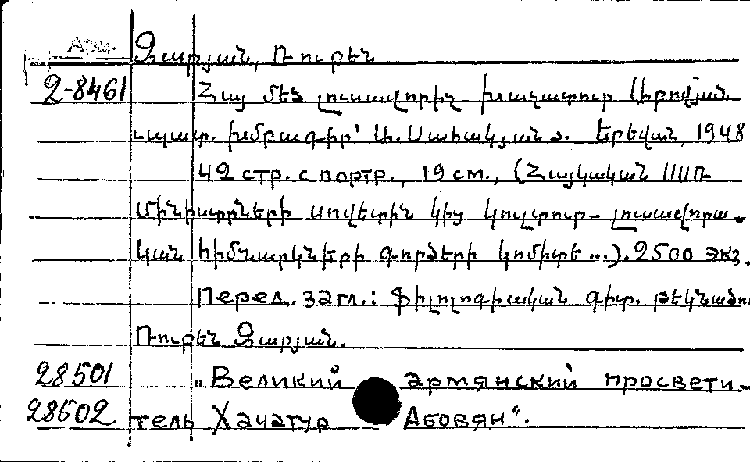 Арм. Զարյան, Ռուբեն
2-8461 Հայ մեծ լուսավորիչ Խաչատուր Աբովյան.
պատ. խմբագիր՝ Ա. Սահակյան Երևան, 1948
42 стр. с портр., 19 см., (Հայկական ՍՍՌ
Մինիստրների սովետին կից կուլտուր-լուսավորա-
կան հիմնարկների գործերի կոմիտե...). 2500 экз.
Перед. загл.: Ֆիլոլոգիական գիտ. թեկնածու
Ռուբեն Զարյան.
28501 „Великий армянский просвети-
28502 тель Хачатур Абовян“.